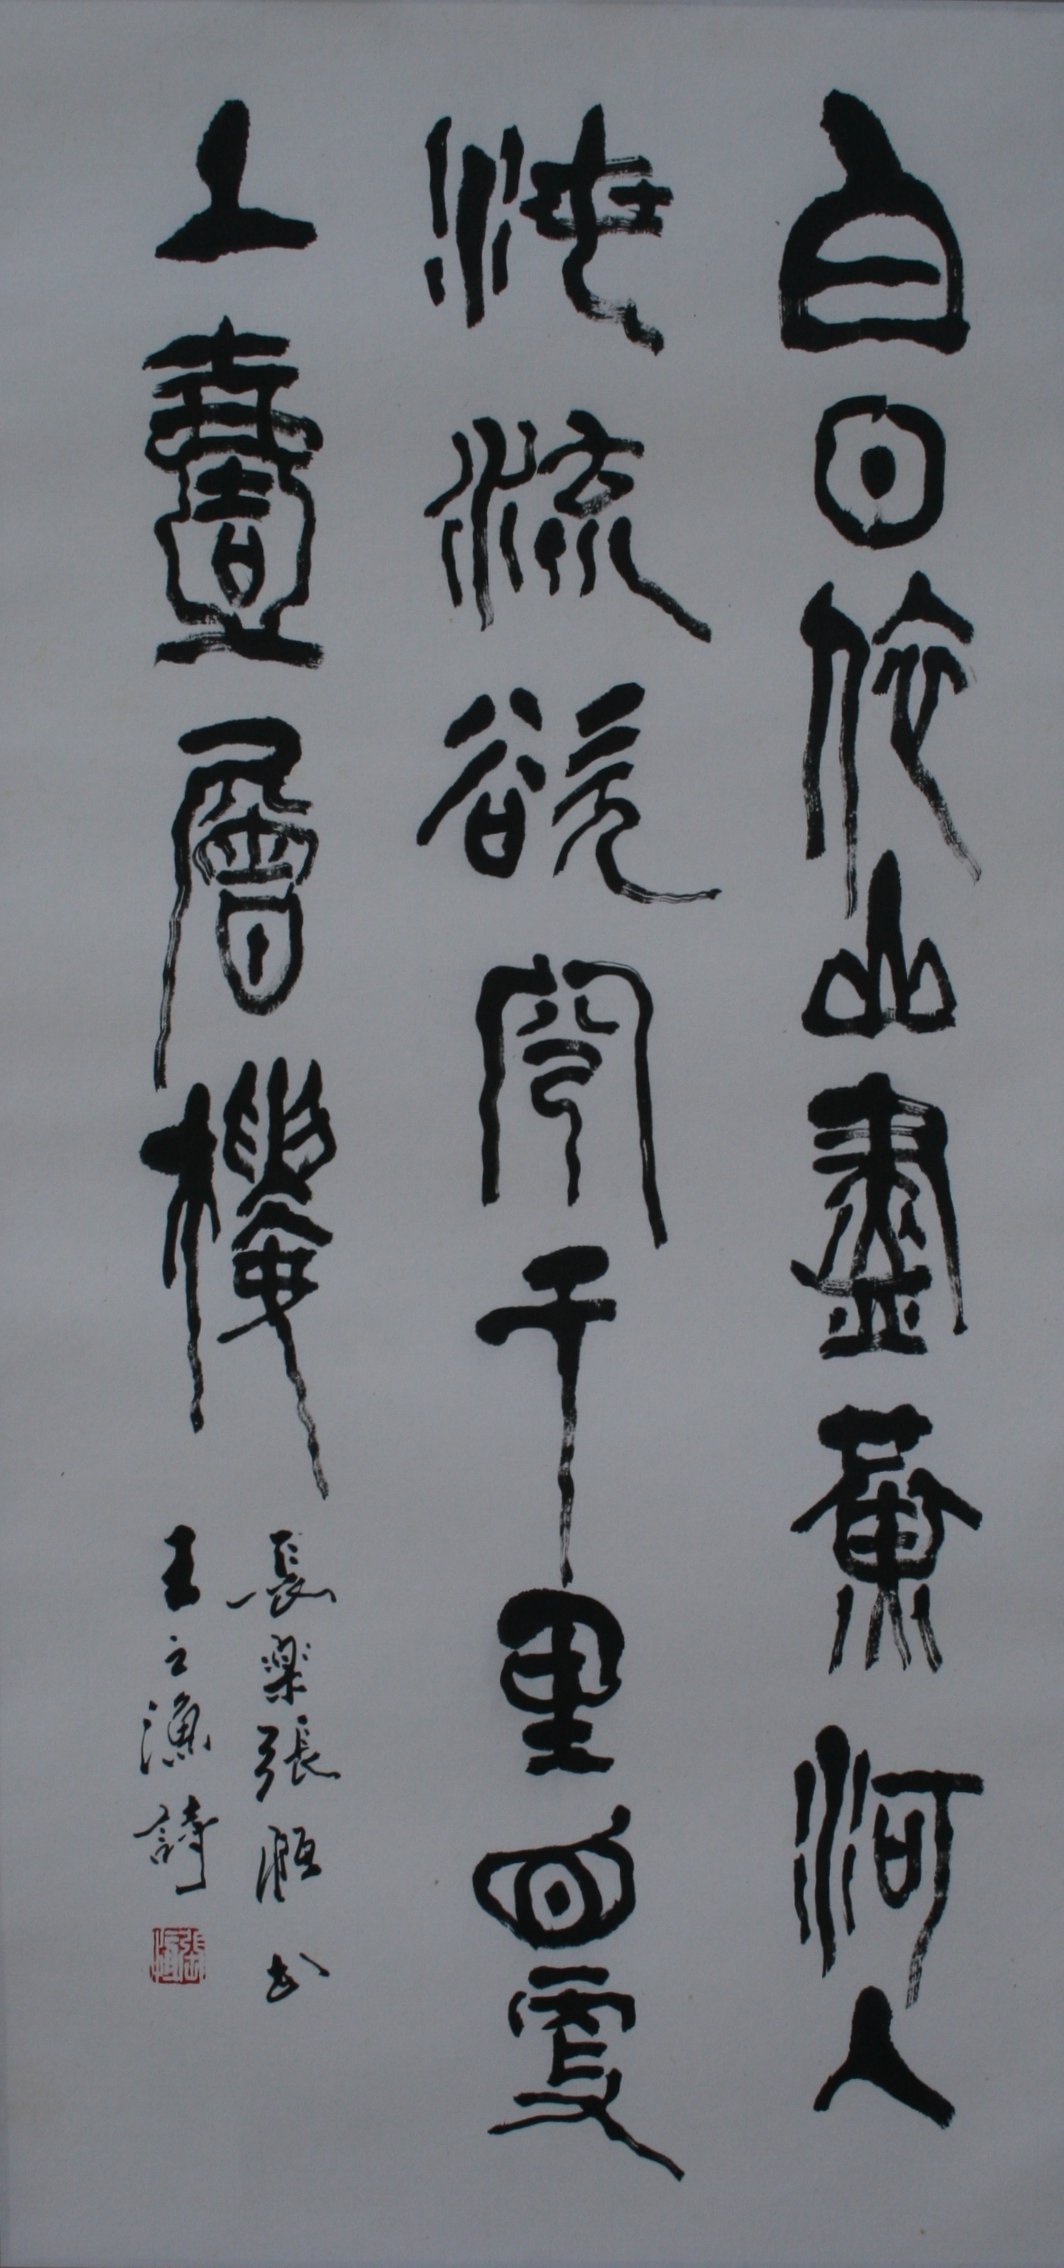 白日依山盡黃河入
海流欲窮千里目更
上壹層樓
長樂張恒书
王之渙詩